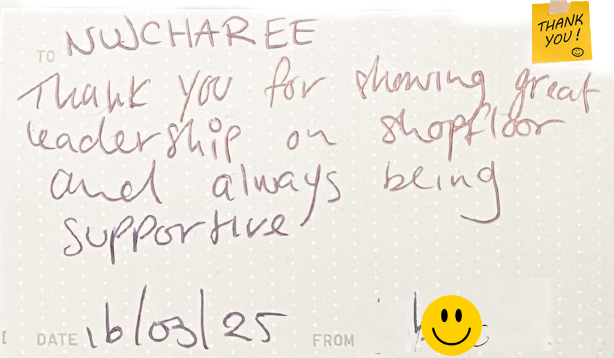 THANK YOU!
TO NWCHAREE
Thank you for showing great
leadership on shopfloor
and always being
supportive
DATE 16/03/25 FROM